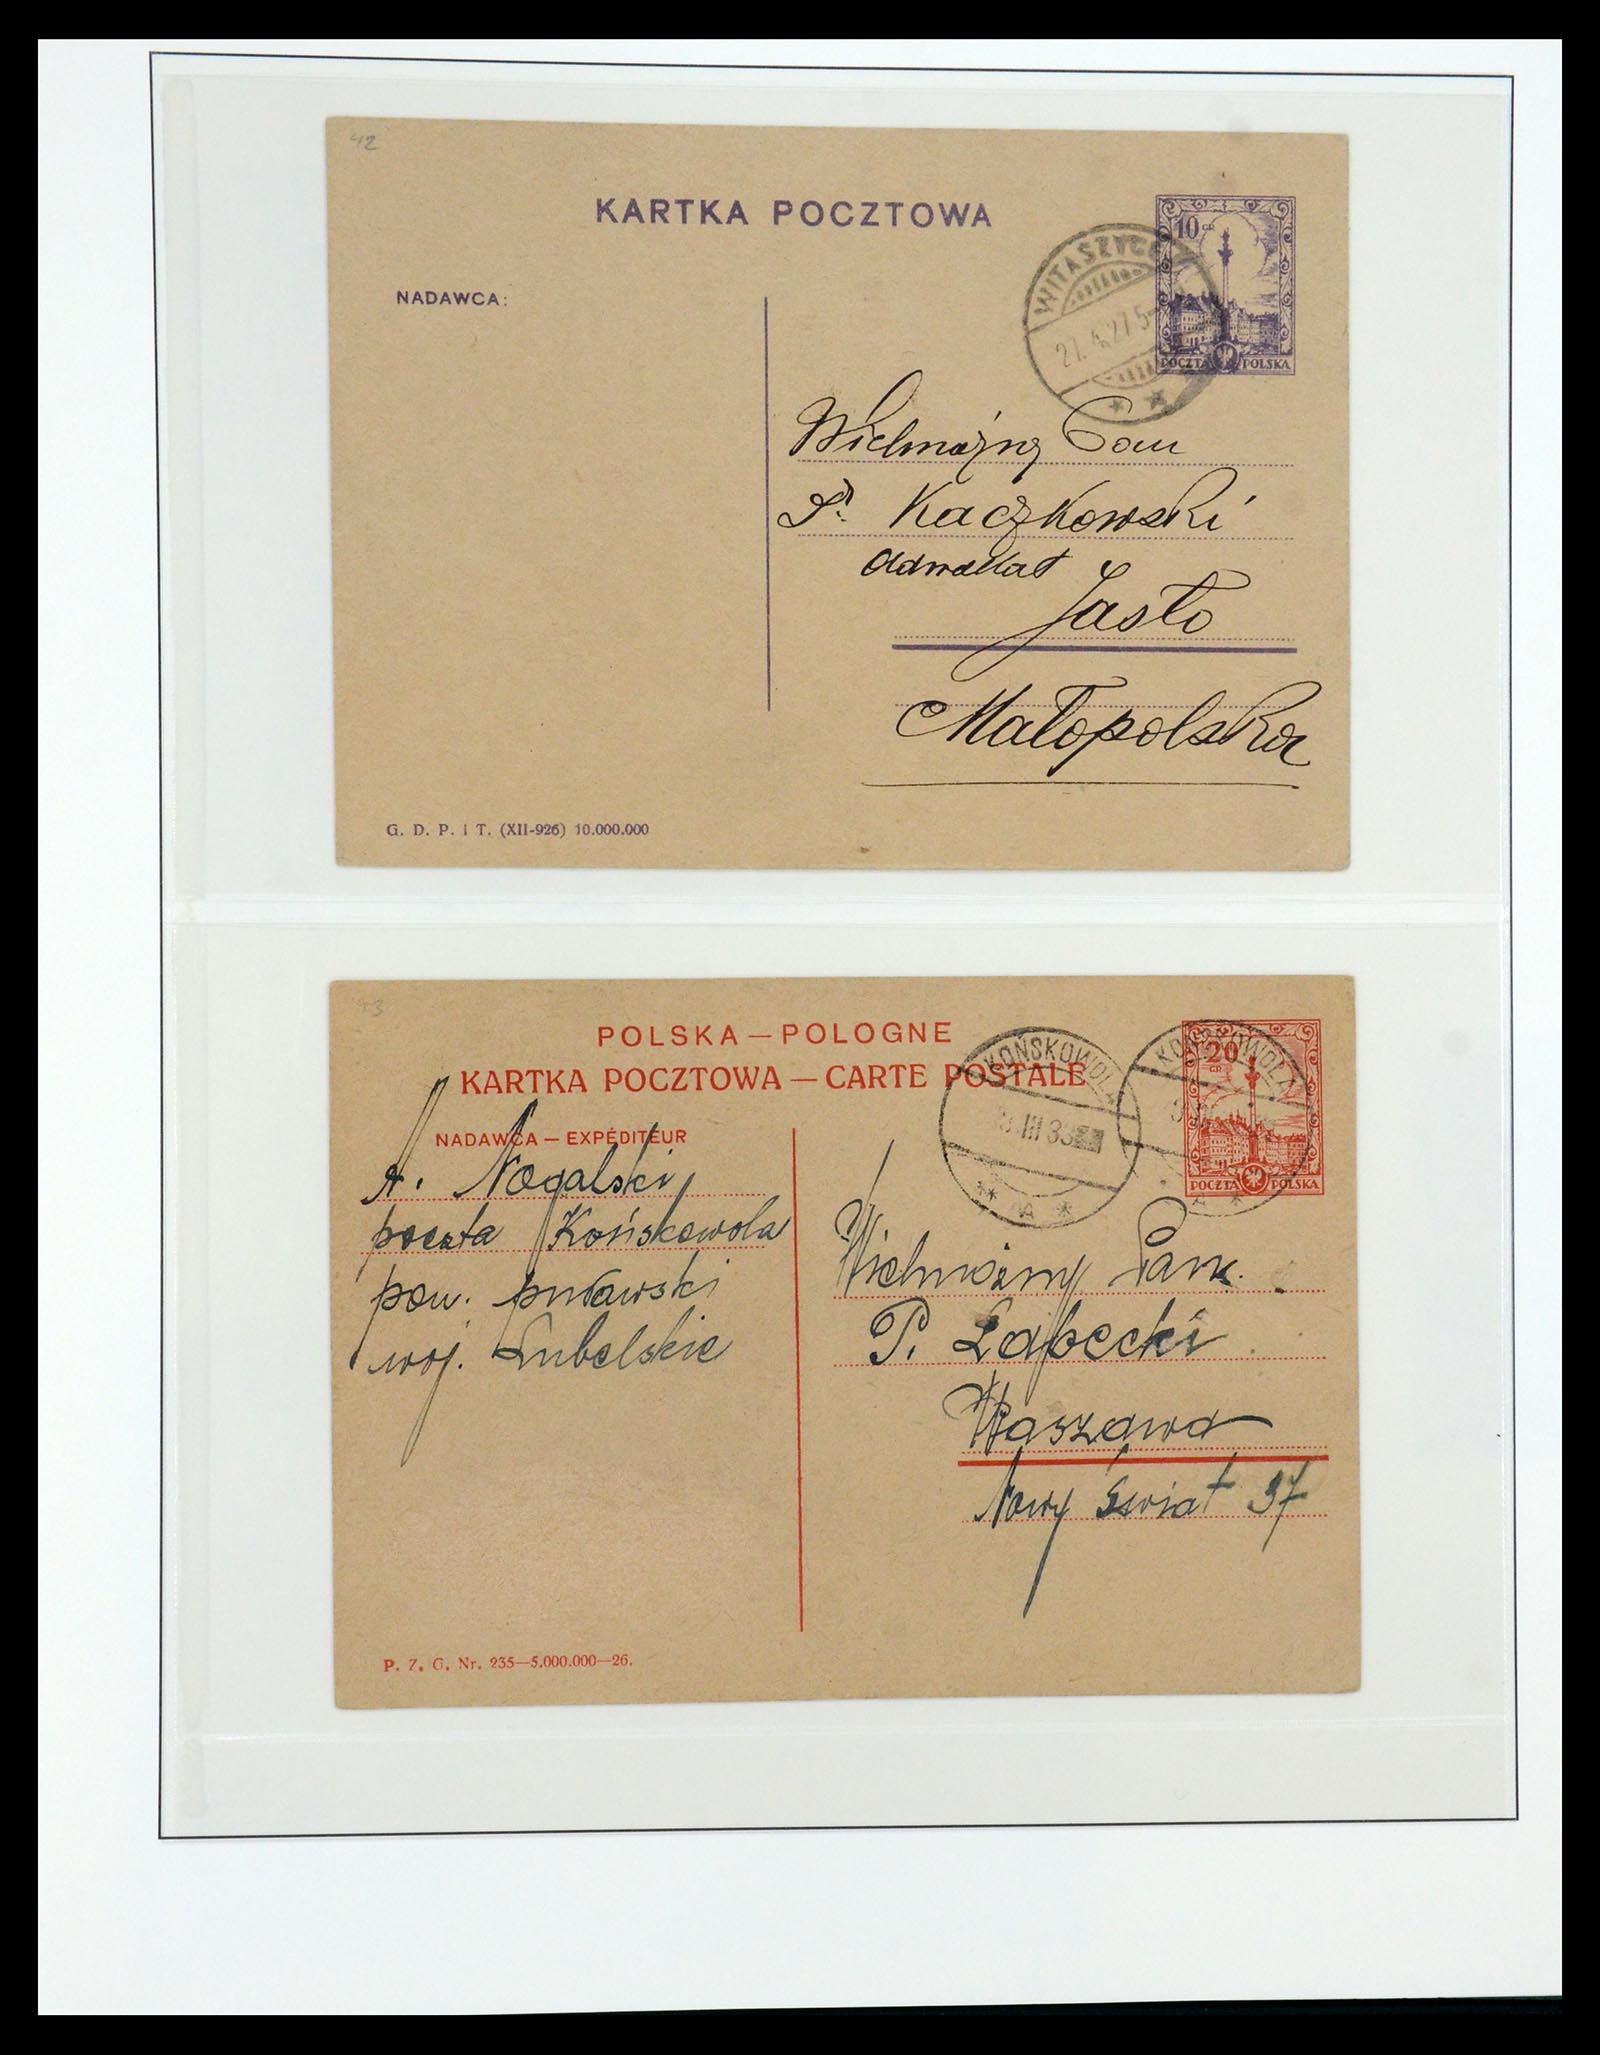 42
KARTKA POCZTOWA
10 GR
POCZTA POLSKA
WITASZYCE
27.4.27.5-
NADAWCA:
Wielmożny Pan
Dr. Kaczkowski
adwokat
Jasło
Małopolska
G. D. P. i T. (XII-926) 10.000.000
43
POLSKA — POLOGNE
KARTKA POCZTOWA — CARTE POSTALE
20 GR
POCZTA POLSKA
KOŃSKOWOLA
III 33
A
KOŃSKOWOLA
A
NADAWCA — EXPÉDITEUR
A. Nogalski
poczta Końskowola
pow. puławski
woj. Lubelskie
Wielmożny Pan
P. Łabęcki
Warszawa
Nowy Świat 37
P. Z. G. Nr. 235—5.000.000—26.